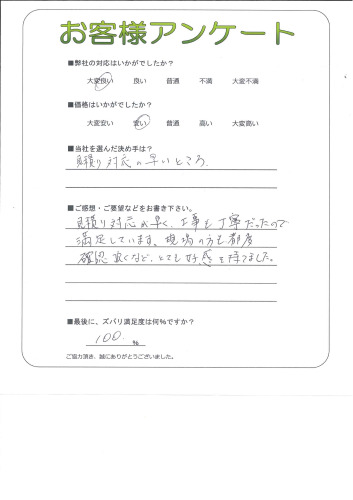 お客様アンケート
■弊社の対応はいかがでしたか？
大変良い 良い 普通 不満 大変不満
■価格はいかがでしたか？
大変安い 安い 普通 高い 大変高い
■当社を選んだ決め手は？
見積り対応の早いところ。
■ご感想・ご要望などをお書き下さい。
見積り対応が早く、工事も丁寧だったので
満足しています。現場の方も都度
確認頂くなど、とても好感を持てました。
■最後に、ズバリ満足度は何％ですか？
100 ％
ご協力頂き、誠にありがとうございました。